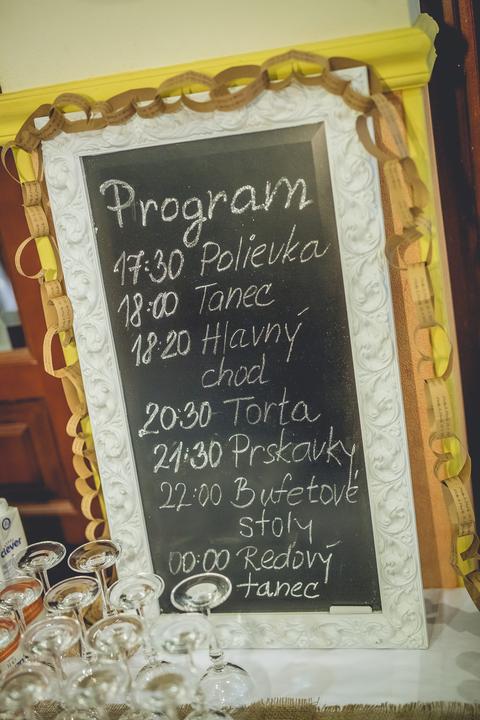 Program
17:30 Polievka
18:00 Tanec
18:20 Hlavný
chod
20:30 Torta
21:30 Prskavky
22:00 Bufetové
stoly
00:00 Redový
tanec
clever